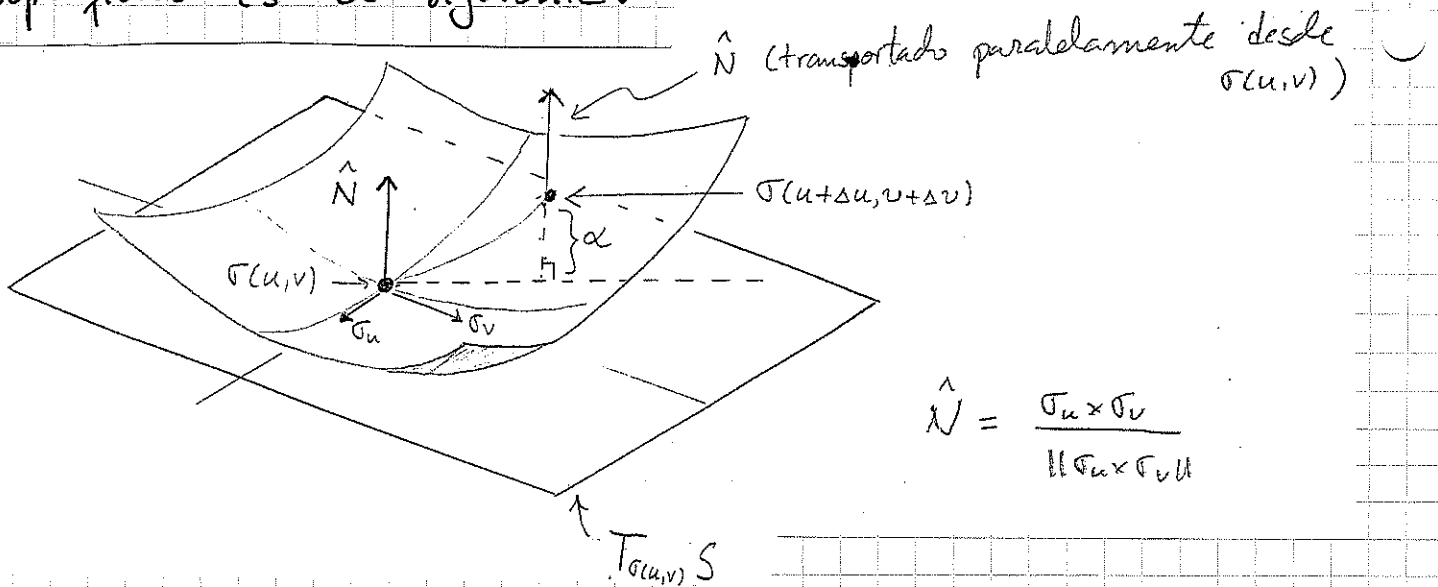 es
N̂ (transportado paralelamente desde
σ(u,v) )
N̂
σ(u+Δu,v+Δv)
α
σ(u,v)
σu
σv
N̂ = σu × σv / ||σu×σv||
Tσ(u,v) S